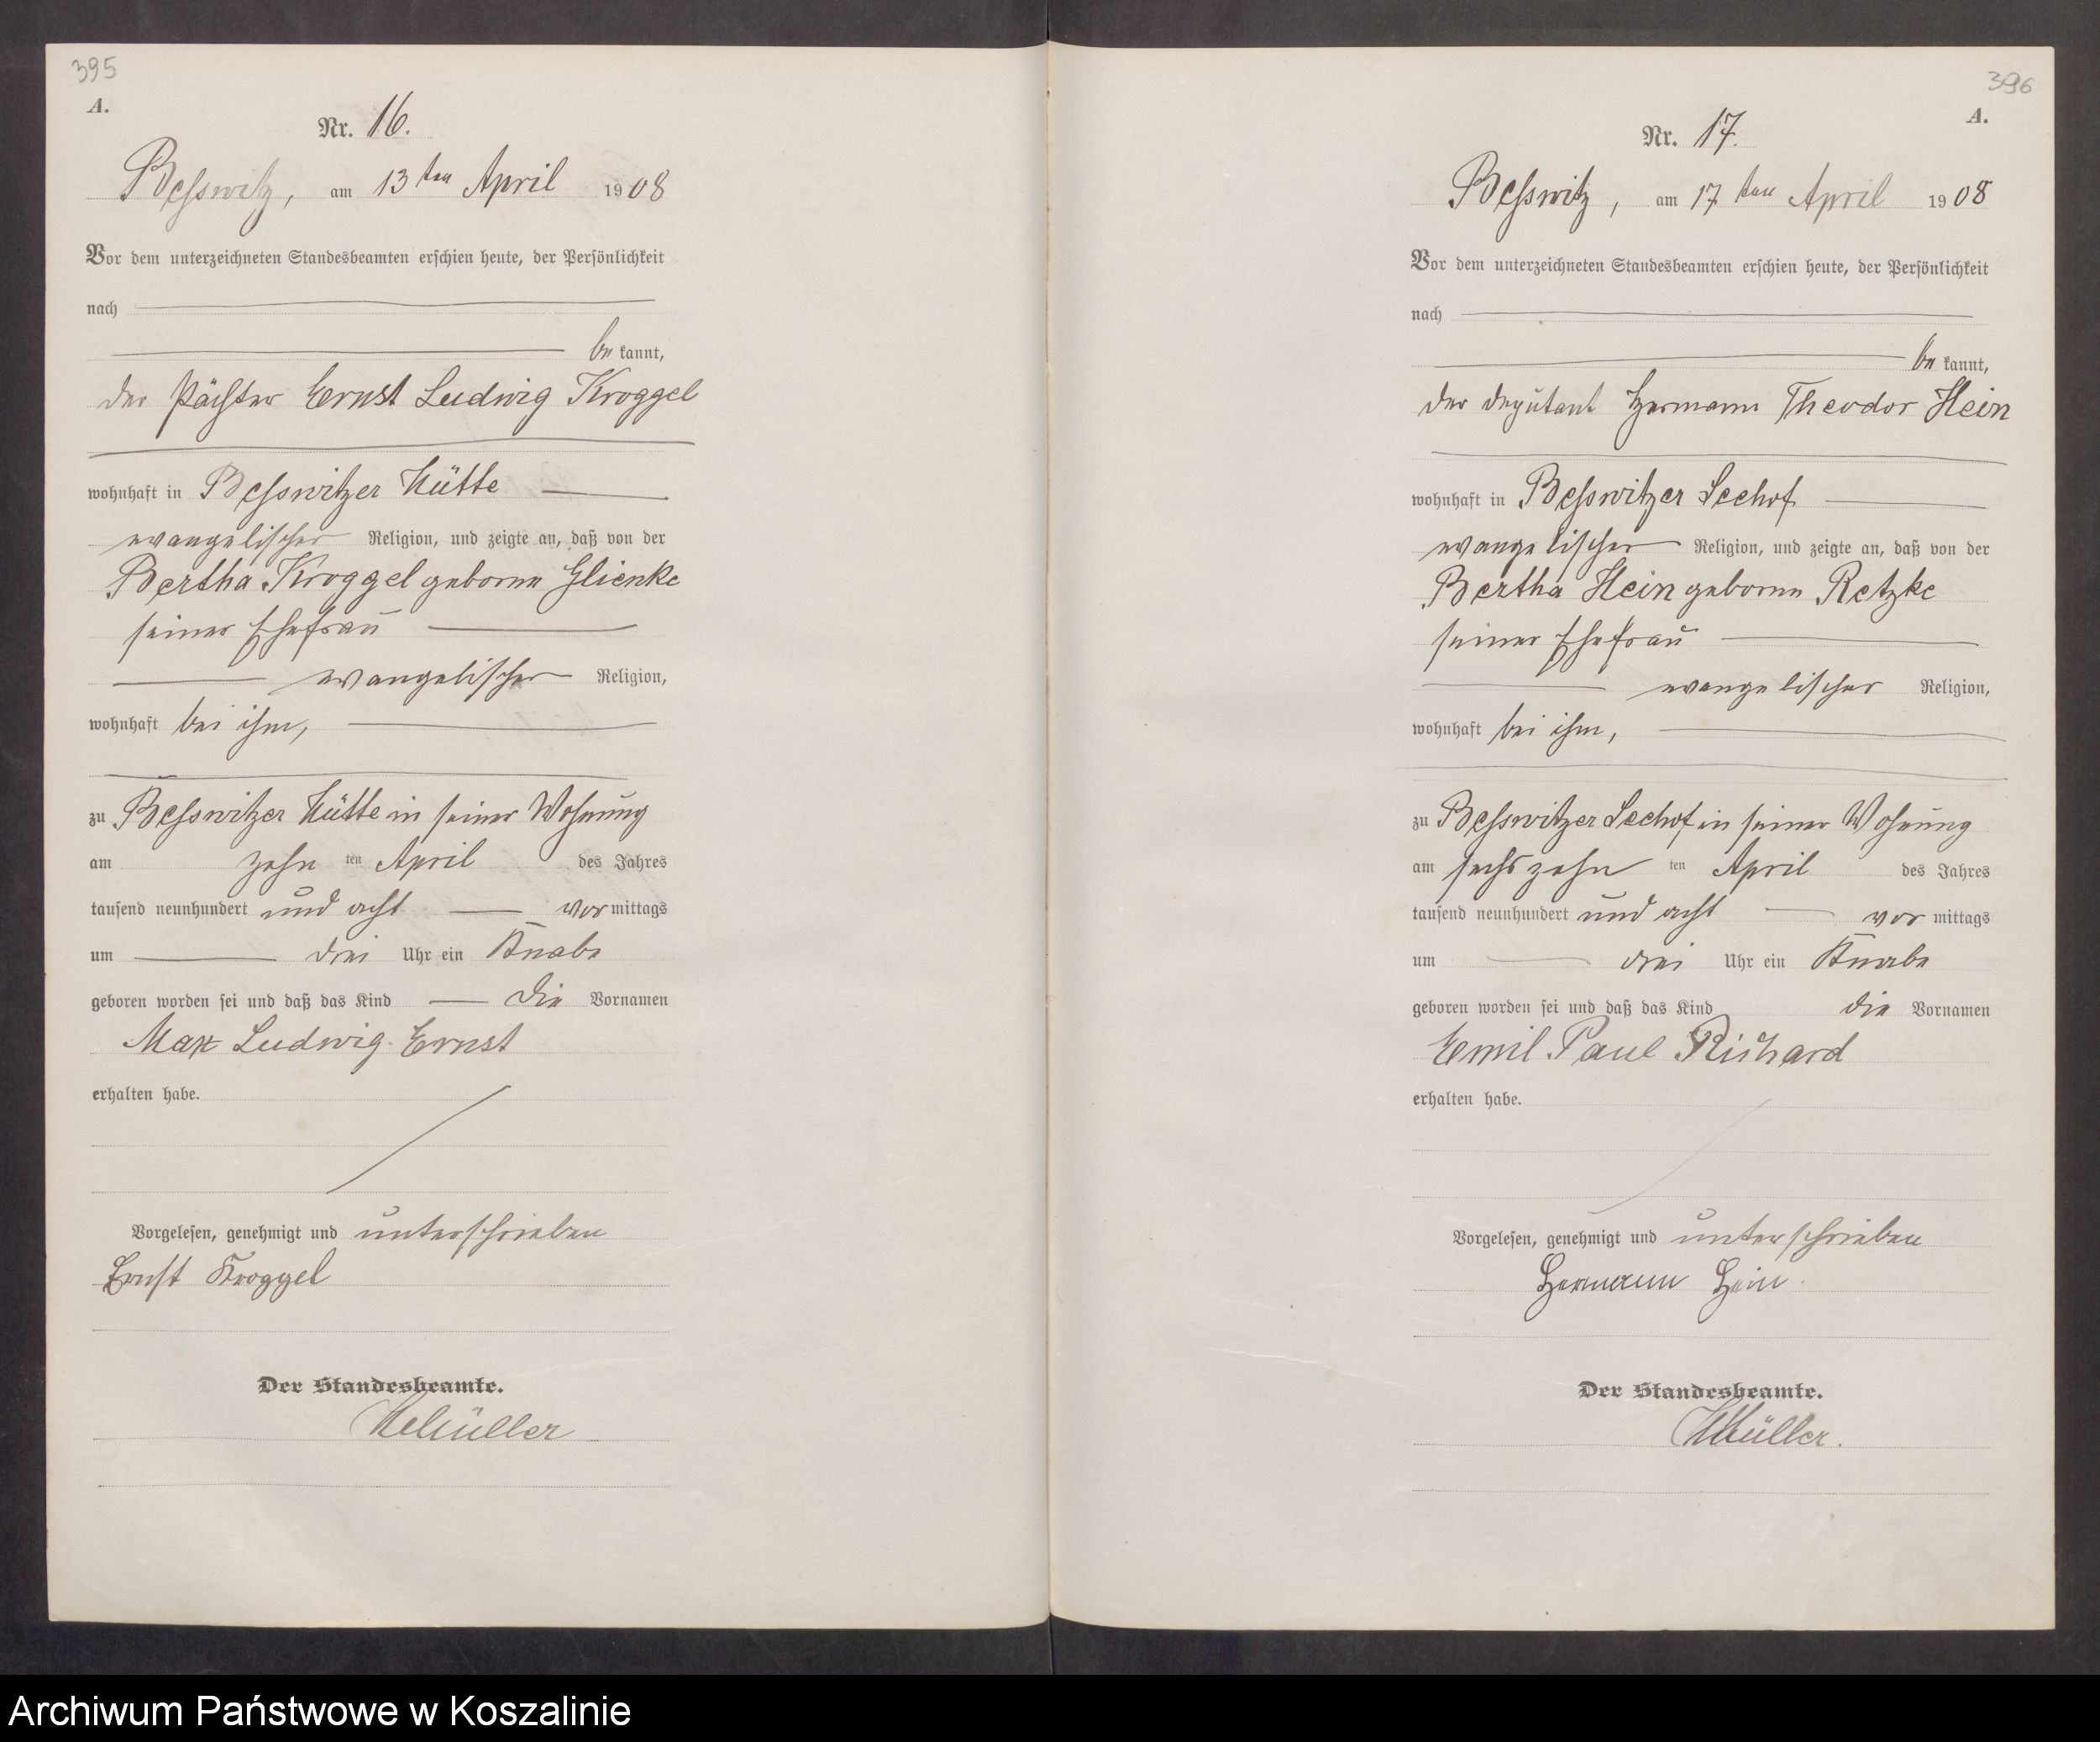 395
A.
Nr. 16.
Besswitz, am 13ten April 1908
Vor dem unterzeichneten Standesbeamten erschien heute, der Persönlichkeit
nach
be kannt,
der Pächter Ernst Ludwig Kroggel
wohnhaft in Besswitzer Hütte
evangelischer Religion, und zeigte an, daß von der
Bertha Kroggel geborne Glienke
seiner Ehefrau
evangelischer Religion,
wohnhaft bei ihm,
zu Besswitzer Hütte in seiner Wohnung
am zehn ten April des Jahres
tausend neunhundert und acht vor mittags
um drei Uhr ein Knabe
geboren worden sei und daß das Kind die Vornamen
Max Ludwig Ernst
erhalten habe.
Vorgelesen, genehmigt und unterschrieben
Ernst Kroggel
Der Standesbeamte.
Müller
396
A.
Nr. 17.
Besswitz, am 17ten April 1908
Vor dem unterzeichneten Standesbeamten erschien heute, der Persönlichkeit
nach
be kannt,
der Deputant Hermann Theodor Hein
wohnhaft in Besswitzer Seehof
evangelischer Religion, und zeigte an, daß von der
Bertha Hein geborne Retzke
seiner Ehefrau
evangelischer Religion,
wohnhaft bei ihm,
zu Besswitzer Seehof in seiner Wohnung
am sechszehn ten April des Jahres
tausend neunhundert und acht vor mittags
um drei Uhr ein Knabe
geboren worden sei und daß das Kind die Vornamen
Emil Paul Richard
erhalten habe.
Vorgelesen, genehmigt und unterschrieben
Hermann Hein.
Der Standesbeamte.
Müller.
Archiwum Państwowe w Koszalinie